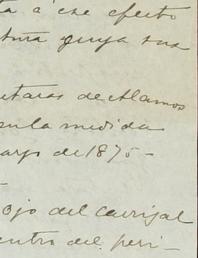 ta á ese efecto
tura cuya sus
utaras de Alamos
en la medida
Marzo de 1875 -
Ojo del Carrizal
dentro del peri -